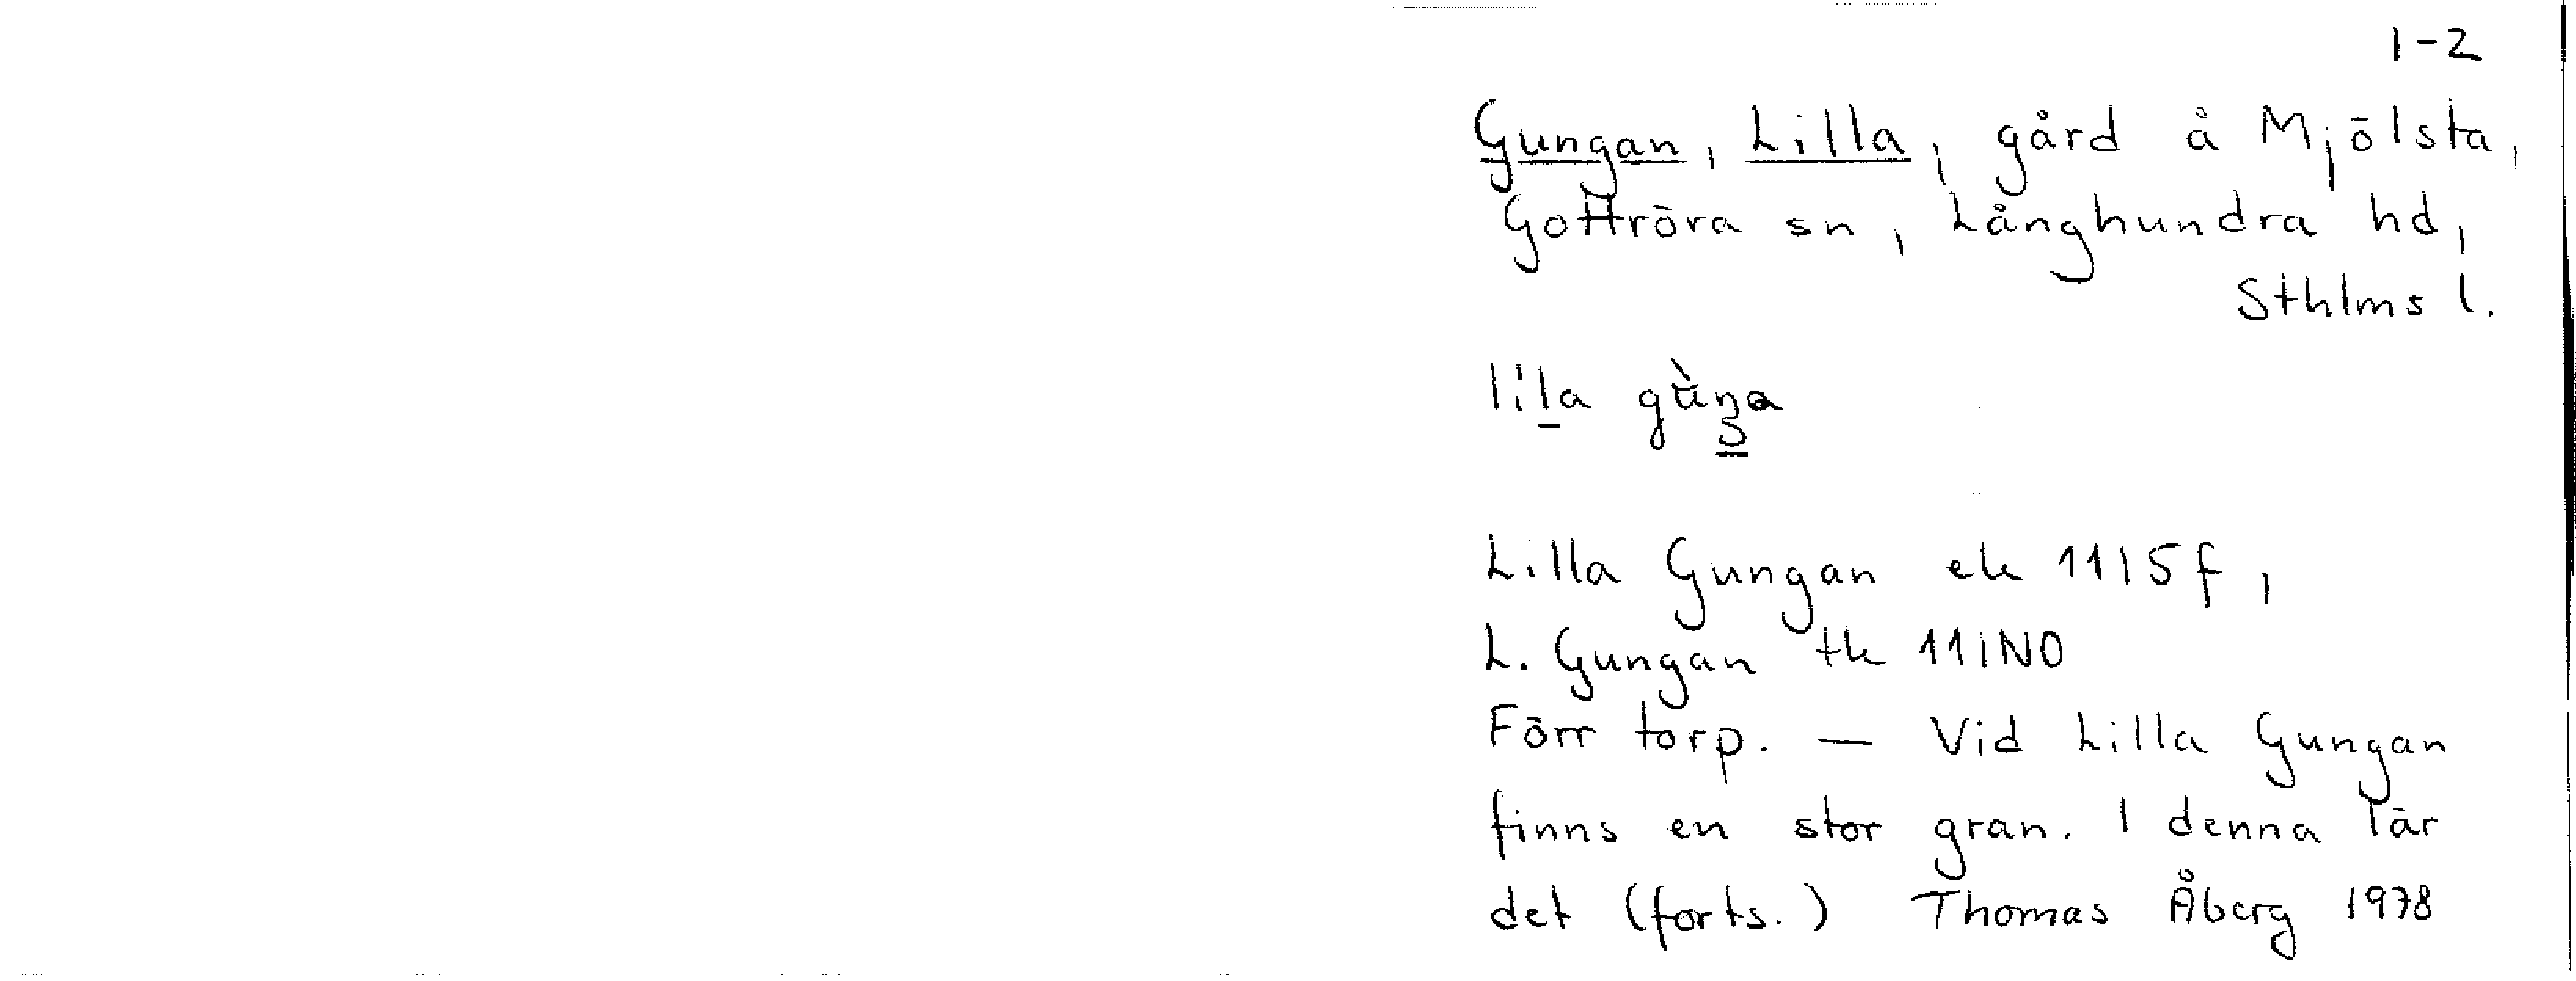 1-2
Gungan, Lilla, gård å Mjölsta,
Gottröra sn, Långhundra hd,
Sthlms l.
lila
Lilla Gungan ek 11I5f,
L. Gungan tk 11INO
Förr torp. — Vid Lilla Gungan
finns en stor gran. I denna lär
det (forts.) Thomas Åberg 1978